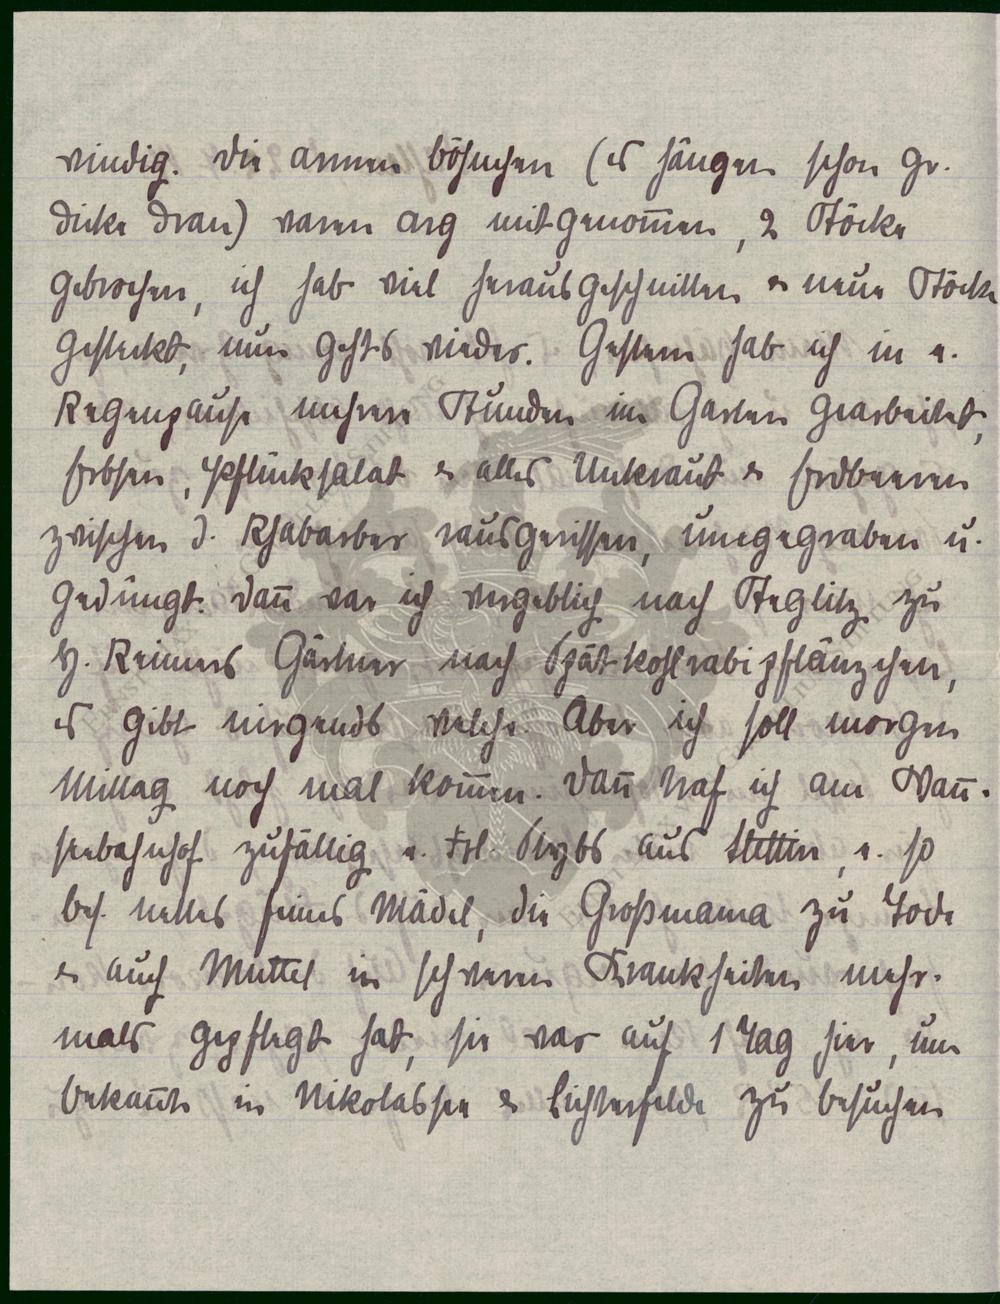 windig. Die armen Böhnchen (es hängen schon ge-
dicke dran) waren arg mitgenom̄en, 2 Stöcke
gebrochen, ich hab viel herausgeschnitten & neue Stöcke
gesteckt, nun gehts wieder. Gestern hab ich in e.
Regenpause mehrere Stunden im Garten gearbeitet,
Erbsen, Pflücksalat & alles Unkraut & Erdbeeren
zwischen d. Rhabarber rausgerissen, umgegraben u.
gedüngt. Dan̄ war ich vergeblich nach Steglitz zu
H. Reimers Gärtner nach Spätkohlrabipflänzchen,
es gibt nirgends welche. Aber ich soll morgen
Mittag noch mal kom̄en. Dan̄ traf ich am Wan̄-
seebahnhof zufällig e. Frl. aus Stettin, e. so
bes. nettes feines Mädel, die Großmama zu Tode
& auch Muttel in schweren Krankheiten mehr-
mals gepflegt hat, sie war auf 1 Tag hier, um
Bekan̄te in Nikolassee & Lichterfelde zu besuchen